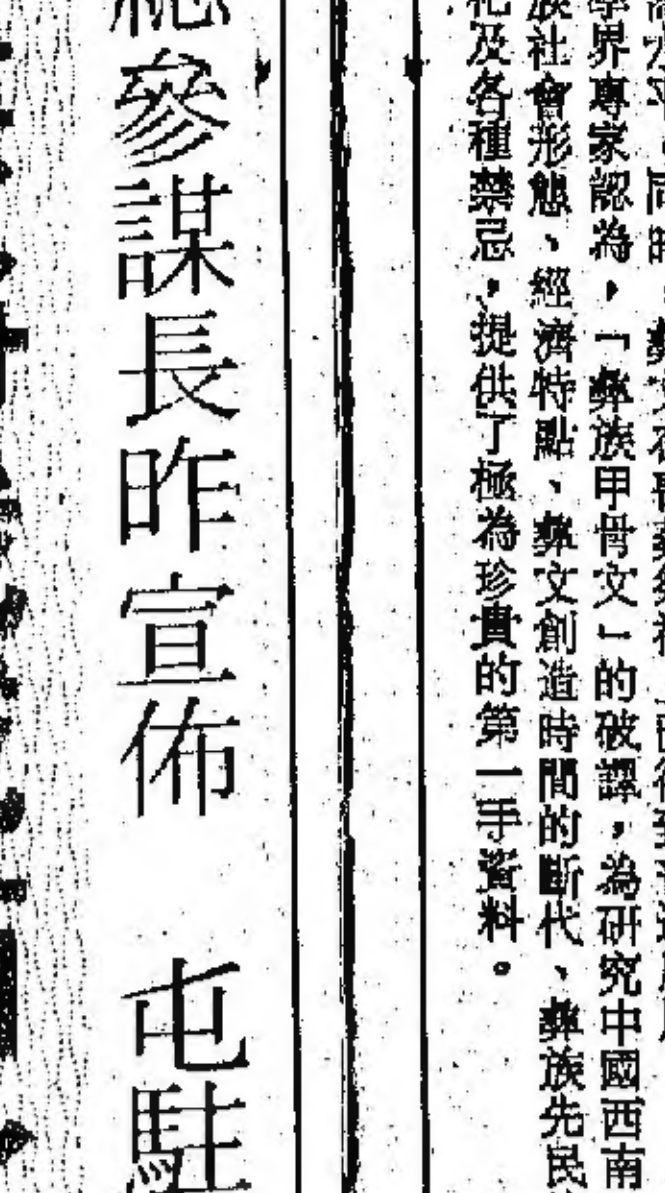 學界專家認為，「彝族甲骨文」的破譯，為研究中國西南
族社會形態、經濟特點、彝文創造時間的斷代、彝族先民
祀及各種禁忌，提供了極為珍貴的第一手資料。
總參謀長昨宣佈　屯駐